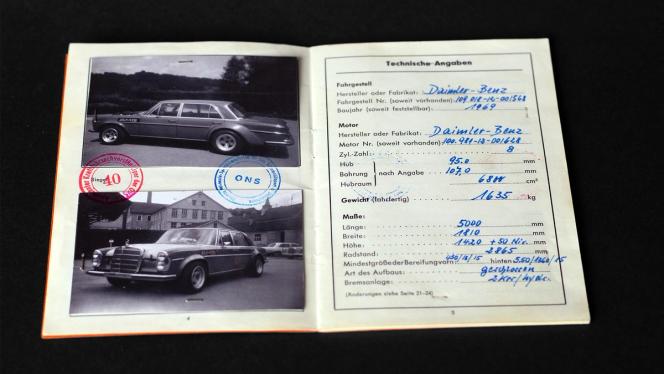 40
ONS
4
Technische Angaben
Fahrgestell
Hersteller oder Fabrikat: Daimler-Benz
Fahrgestell Nr. (soweit vorhanden): 109.018-12-001568
Baujahr (soweit feststellbar): 1969
Motor
Hersteller oder Fabrikat: Daimler-Benz
Motor Nr. (soweit vorhanden): 100.981-12-001628
Zyl.-Zahl: 8
Hub 95.0 mm
Bohrung nach Angabe 107.0 mm
Hubraum cm³
Gewicht (fahrfertig) 1635 kg
Maße:
Länge: 5000 mm
Breite: 1810 mm
Höhe: 1420 + 50 Niv. mm
Radstand: 2865 mm
Mindestgröße der Bereifung vorn: hinten
Art des Aufbaus: geschlossen
Bremsanlage: 2 Kreis/hydr.
(Änderungen siehe Seite 21-24)
5